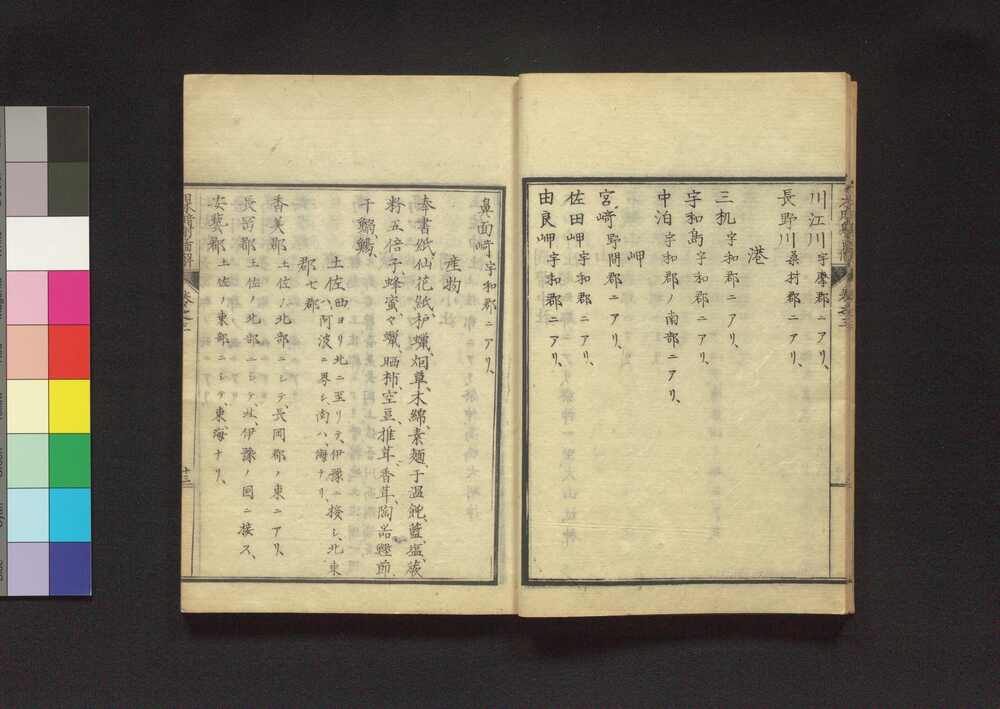 川江川宇摩郡ニアリ、
長野川桑村郡ニアリ、
港
三机宇和郡ニアリ、
宇和島宇和郡ニアリ、
中泊宇和郡ノ南部ニアリ、
岬
宮崎野間郡ニアリ、
佐田岬宇和郡ニアリ、
由良岬宇和郡ニアリ、
鼻面崎宇和郡ニアリ、
産物
奉書紙、仙花紙、炉蠟、烟草、木綿、素麺、干温飩、藍、塩、蕨
粉、五倍子、蜂蜜、蠟、晒柿、空豆、椎茸、香茸、陶器、鰹節、
干鰯、鯣、
土佐西ヨリ北ニ至リテ、伊豫ニ接シ、北東
ハ、阿波ニ界シ、南ハ、海ナリ、
郡七郡
香美郡土佐ノ北部ニシテ、長岡郡ノ東ニアリ、
長岡郡土佐ノ北部ニシテ、北、伊豫ノ国ニ接ス、
安藝郡土佐ノ東部ニシテ、東、海ナリ、
巻之三
十三